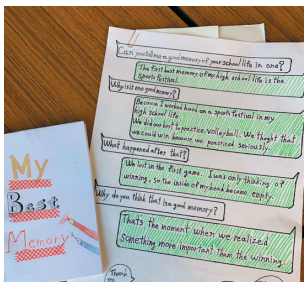 Can you tell me a good memory of your school life in one?
The first best memory of my high school life is the
sports festival.
Why is it one good memory?
Because I worked hard on a sports festival in my
high school life.
We did our best to practice Volleyball. We thought that
we could win because we practiced seriously.
What happened after that?
We lost in the first game. I was only thinking of
winning, so the inside of my head became empty.
Why do you think that is a good memory?
That's the moment when we realized
something more important than the winning.
Thank
My
Best
Memory